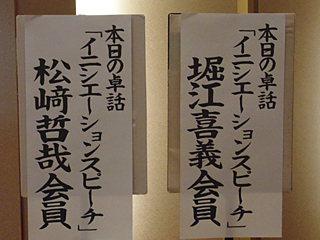 本日の卓話
「イニシエーションスピーチ」
堀江喜義会員
本日の卓話
「イニシエーションスピーチ」
松﨑哲哉会員